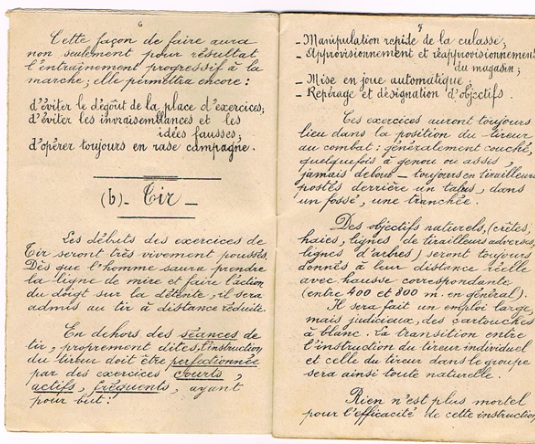 6
Cette façon de faire aura
non seulement pour résultat
l'entraînement progressif à la
marche; elle permettra encore:
d'éviter le dégoût de la place d'exercices;
d'éviter les invraisemblances et les
idées fausses;
d'opérer toujours en rase campagne.
(b)_ Tir _
Les débuts des exercices de
Tir seront très vivement poussés.
Dès que l'homme saura prendre
la ligne de mire et faire l'action
du doigt sur la détente, il sera
admis au tir à distance réduite.
En dehors des séances de
tir, proprement dites, l'instruction
du tireur doit être perfectionnée
par des exercices courts,
actifs, fréquents, ayant
pour but:
7
- Manipulation rapide de la culasse;
- Approvisionnement et réapprovisionnement
du magasin;
- Mise en joue automatique
- Repérage et désignation d'objectifs.
Ces exercices auront toujours
lieu dans la position du tireur
au combat: généralement couché,
quelquefois à genou ou assis,
jamais debout _ toujours en tirailleurs
postés derrière un talus, dans
un fossé, une tranchée.
Des objectifs naturels, (crêtes,
haies, lignes de tirailleurs adverses,
lignes d'arbres) seront toujours
donnés à leur distance réelle
avec hausse correspondante
(entre 400 et 800 m. en général).
Il sera fait un emploi large,
mais judicieux, des cartouches
à blanc. La transition entre
l'instruction du tireur individuel
et celle du tireur dans le groupe
sera ainsi toute naturelle.
Rien n'est plus mortel
pour l'efficacité de cette instruction